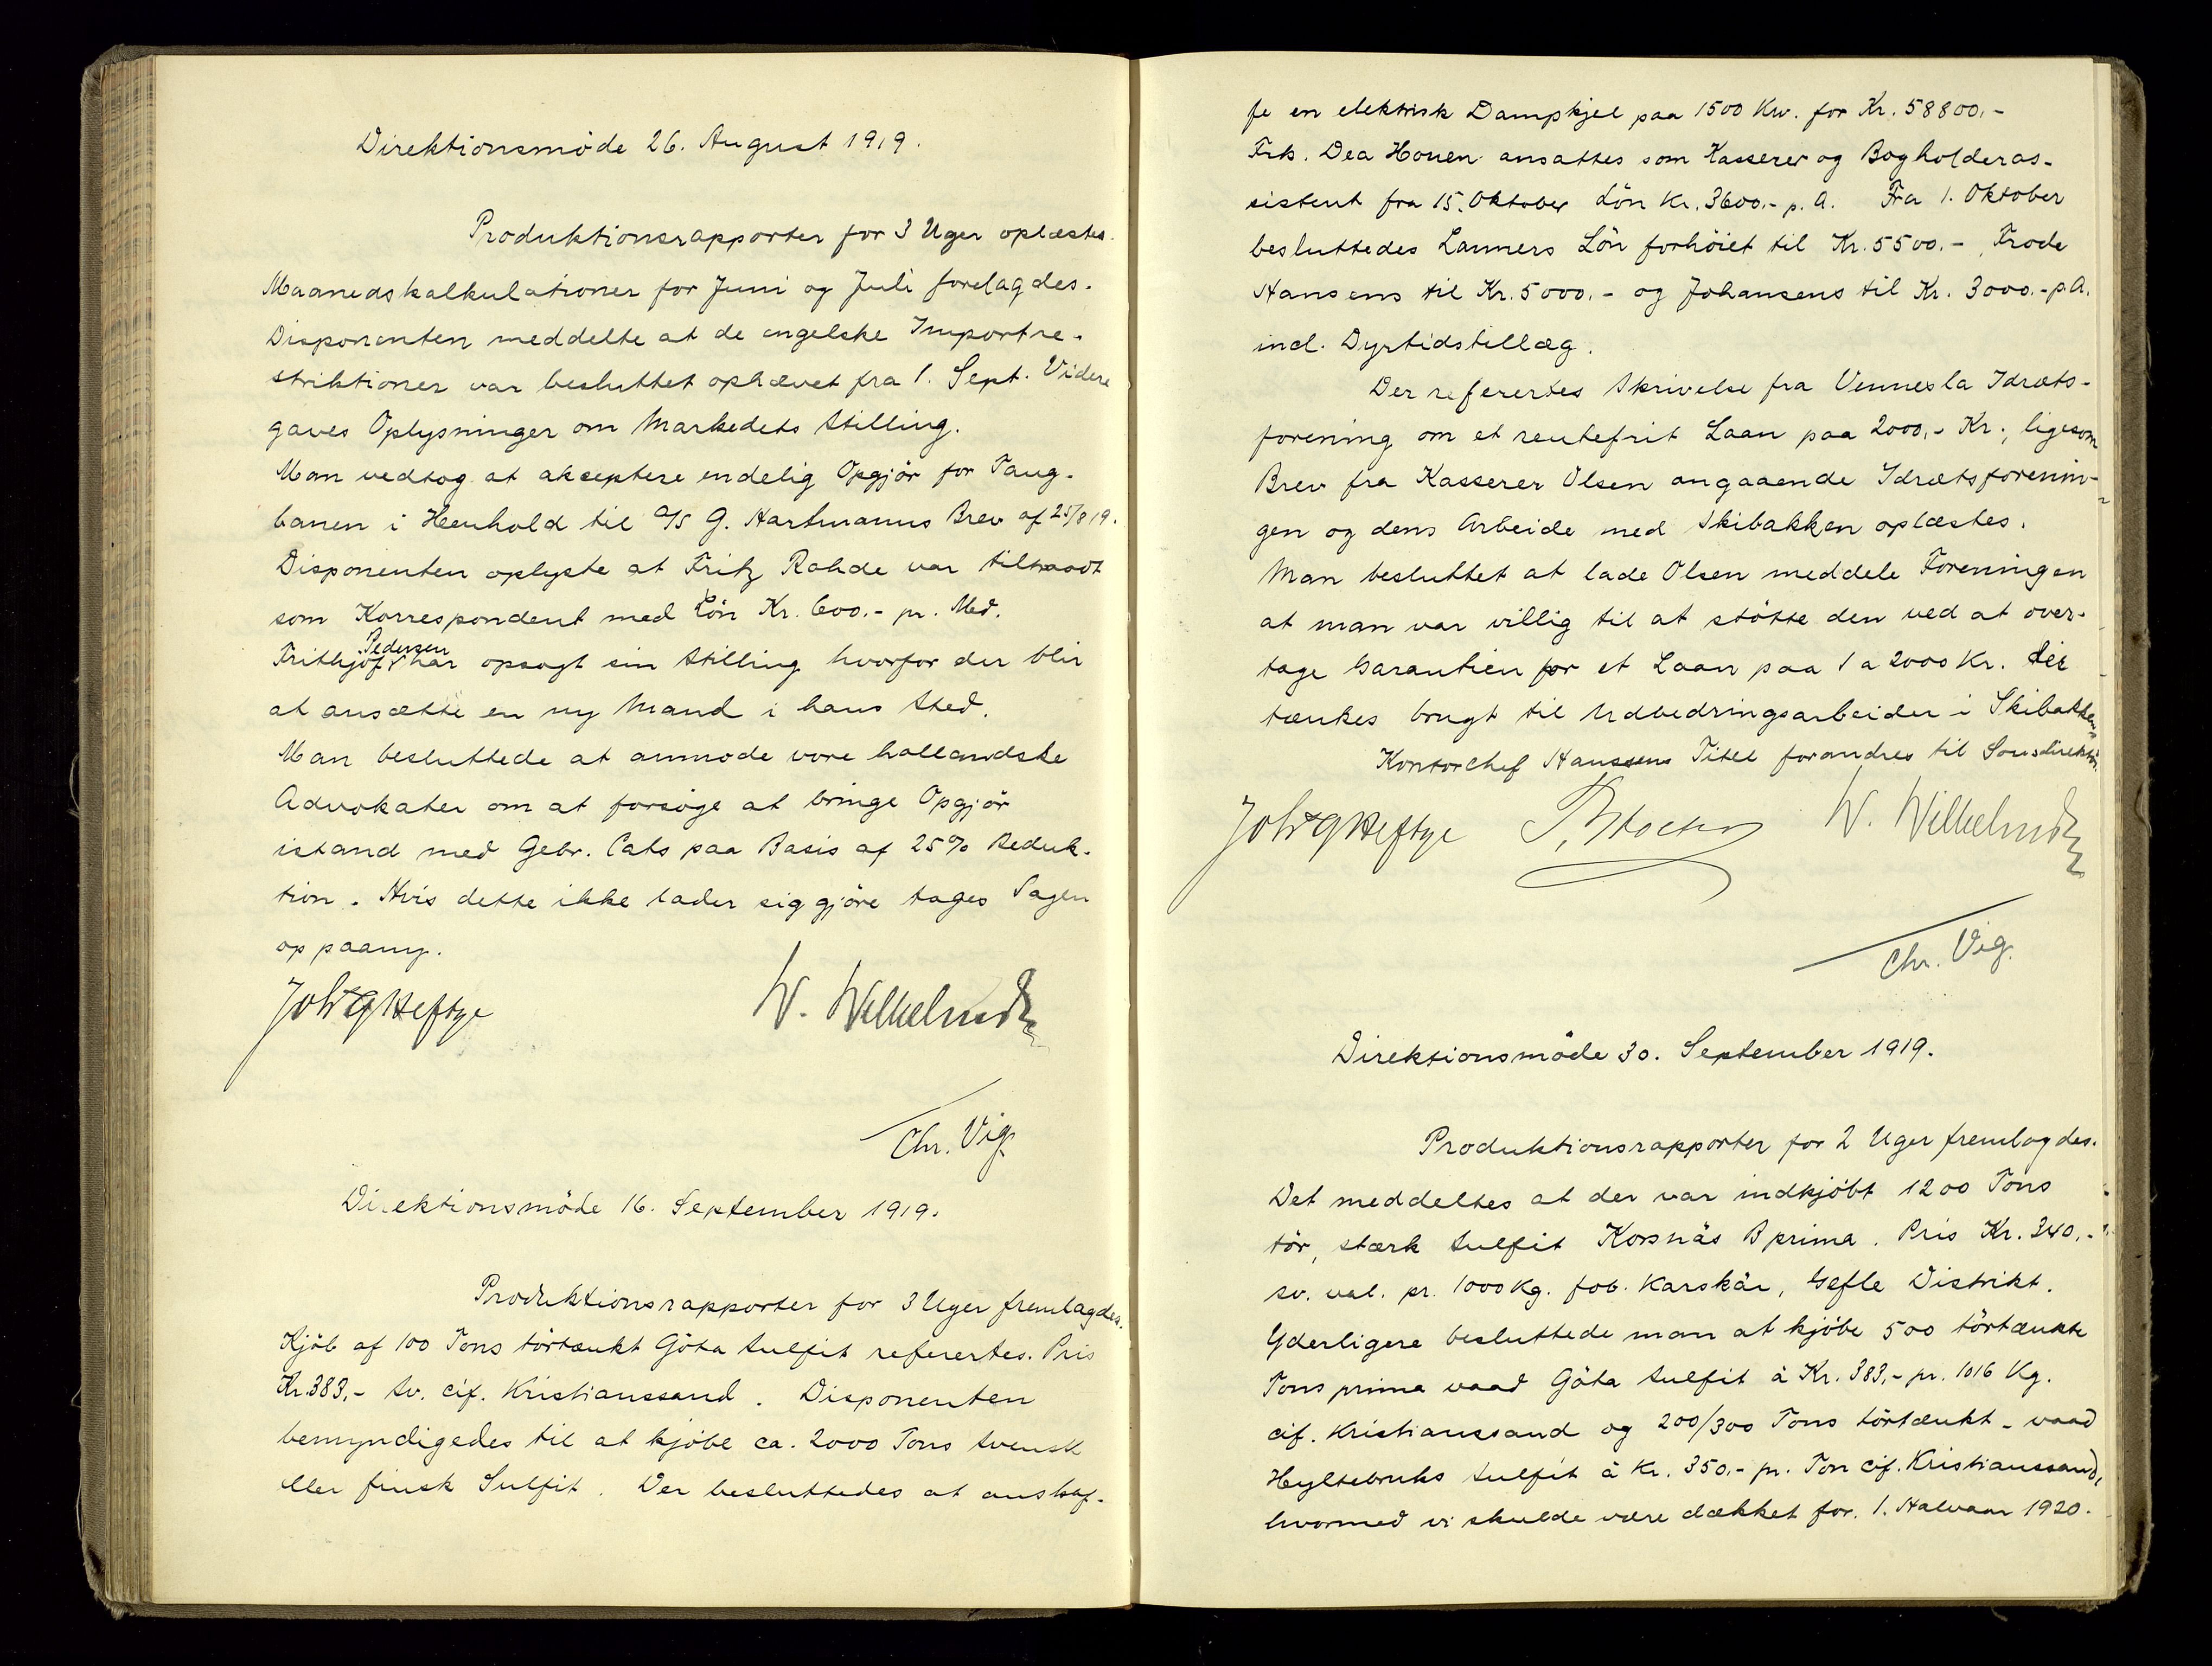 Direktionsmöde 26. August 1919.
Produktionsrapporter for 3 Uger oplæstes.
Maanedskalkulationer for Juni og Juli forelagdes.
Disponenten meddelte at de engelske Importre-
striktioner var besluttet ophævet fra 1. Sept. Videre
gaves Oplysninger om Markedets Stilling.
Man vedtog at akseptere endelig Opgjör for Taug-
banen i Henhold til A/S G. Hartmanns Brev af 25/8 19.
Disponenten oplyste at Fritz Rohde var tiltraadt
som Korrespondent med Lön Kr. 600.- pr. Md.
Pedersen
Frithjof har opsagt sin Stilling hvorfor der blir
at ansætte en ny Mand i hans Sted.
Man besluttede at anmode vore hollandske
Advokater om at forsøge at bringe Opgjör
istand med Gebr. Cats paa Basis af 25% Reduk-
tion. Hvis dette ikke lader sig gjöre tages Sagen
op paany.
Joh G Heftye W. Wilhelmsen
Chr. Vig.
Direktionsmöde 16. September 1919.
Produktionsrapporter for 3 Uger fremlagdes.
Kjöb af 100 Tons törtænkt Göta Sulfit refertes. Pris
Kr. 383,- Sv. cif. Kristianssand. Disponenten
bemyndigedes til at kjöbe ca. 2000 Tons Svensk
eller finsk Sulfit. Der besluttedes at anskaf-
fe en elektrisk Dampkjel paa 1500 Kw. for Kr. 58800.-
Frk. Dea Houen ansattes som Kasserer og Bogholderas-
sistent fra 15. Oktober Lön Kr. 3600.- p. A. Fra 1. Oktober
besluttedes Lanners Lön forhöiet til Kr. 5500.-, Frode
Hansens til Kr. 5000.- og Johansens til Kr. 3000.- p.A.
incl. Dyrtidstillæg.
Der referertes Skrivelse fra Vennesla Idræts-
forening om et rentefrit Laan paa 2000,- Kr., ligesom
Brev fra Kasserer Olsen angaaende Idrætsforenin-
gen og dens Arbeide med Skibakken oplæstes.
Man besluttet at lade Olsen meddele Foreningen
at man var villig til at stötte den ved at over-
tage Garantien for et Laan paa 1 a 2000 Kr. der
tænkes brugt til Udbedringsarbeider i Skibakken
Kontorchef Hanssens Titel forandres til Sousdirektör.
Joh G Heftye W. Wilhelmsen
Chr. Vig.
Direktionsmöde 30. September 1919.
Produktionsrapporter for 2 Uger fremlagdes.
Det meddeltes at der var indkjöbt 1200 Tons
tör, stærk Sulfit Korsnäs B prima. Pris Kr. 340.-
sv. val. pr. 1000 Kg. fob. Karskär, Gefle Distrikt.
Yderligere besluttede man at kjöbe 500 törtænkte
Tons prima vaad Göta Sulfit à Kr. 383,- pr. 1016 Kg.
cif. Kristianssand og 200/300 Tons törtænkt - vaad
Hyltebruks Sulfit à Kr. 350.- pr. Ton cif. Kristianssand,
hvormed vi skulde være dækket for 1. Halvaar 1920.